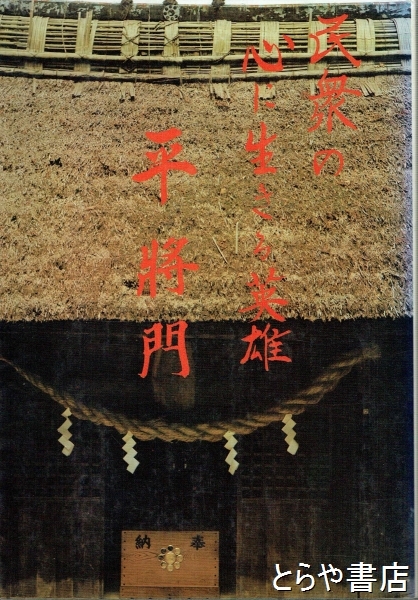 民衆の
心に生きる英雄
平將門
奉納
とらや書店